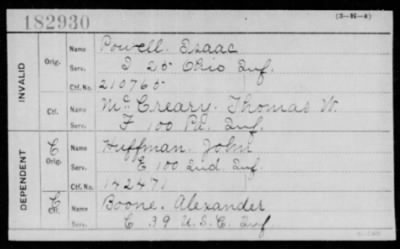 182930 (3-814)
INVALID
Orig. Name Powell. Isaac
Serv. I 25 Ohio Inf.
Ctf. No. 210765
Ctf. Name McCreary. Thomas W.
Serv. F 100 Pa. Inf.
DEPENDENT
C Orig. Name Huffman. John
Serv. E 100 Ind. Inf.
Ctf. No. 142471
Ctf. Name Boone. Alexander
Serv. C 39 U.S.C. Inf